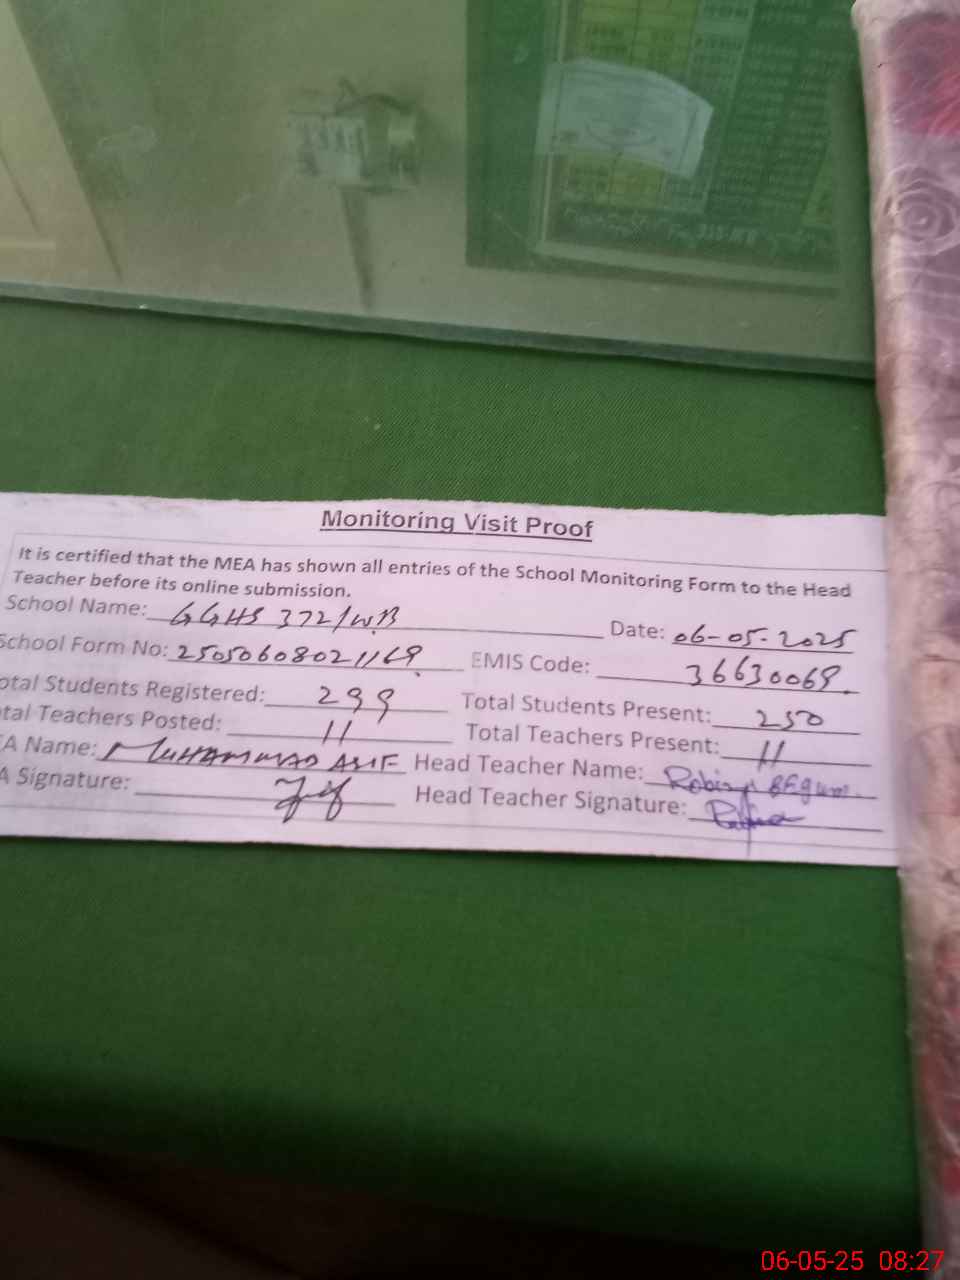 Monitoring Visit Proof
It is certified that the MEA has shown all entries of the School Monitoring Form to the Head
Teacher before its online submission.
School Name: GGHS 372/W.B Date: 06-05-2025
School Form No: 25050608021169 EMIS Code: 36630069
otal Students Registered: 299 Total Students Present: 250
tal Teachers Posted: 11 Total Teachers Present: 11
A Name: MUHAMMAD ASIF Head Teacher Name: Begum
A Signature: Head Teacher Signature:
06-05-25 08:27